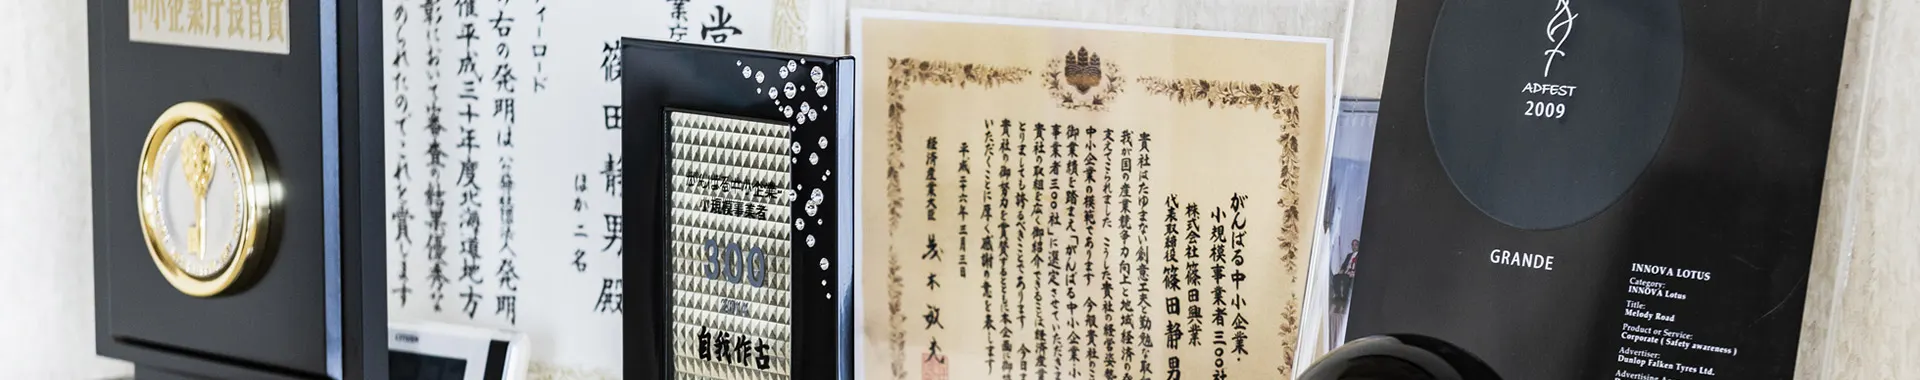 中小企業庁長官賞
賞
業庁
ィーロード
の右の発明は公益社団法人発明
催平成三十年度北海道地方
彰において審査の結果優秀な
められたのでこれを賞します
篠田静男殿
ほか二名
がんばる中小企業・
小規模事業者
300
2014
自我作古
がんばる中小企業・
小規模事業者三〇〇社
株式会社篠田興業
代表取締役篠田静男
貴社はたゆまない創意工夫と勤勉な取
我が国の産業競争力向上と地域経済の
支えてこられました こうした貴社の経営姿勢
中小企業の模範であります 今般貴社のこ
御業績を踏まえ「がんばる中小企業・小
事業者三〇〇社」に選定させていただき
貴社の取組を広く御紹介できることは経済産業
とりましても誇るべきことであります 今日ま
貴社の御努力を賞賛するとともに本企画に御
いただくことに厚く感謝の意を表します
平成二十六年三月三日
経済産業大臣 茂木敏充
ADFEST
2009
GRANDE
INNOVA LOTUS
Category:
INNOVA Lotus
Title:
Melody Road
Product or Service:
Corporate ( Safety awareness )
Advertiser:
Dunlop Falken Tyres Ltd.
Advertising